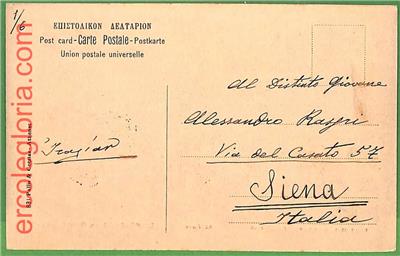 1/6
ΕΠΙΣΤΟΛΙΚΟΝ ΔΕΛΤΑΡΙΟΝ
Post card-Carte Postale-Postkarte
Union postale universelle
Al Distinto Giovane
Alessandro Raspi
Via del Casato 57
Siena
Italia
Ἰταλίαν
ercolegloria.com